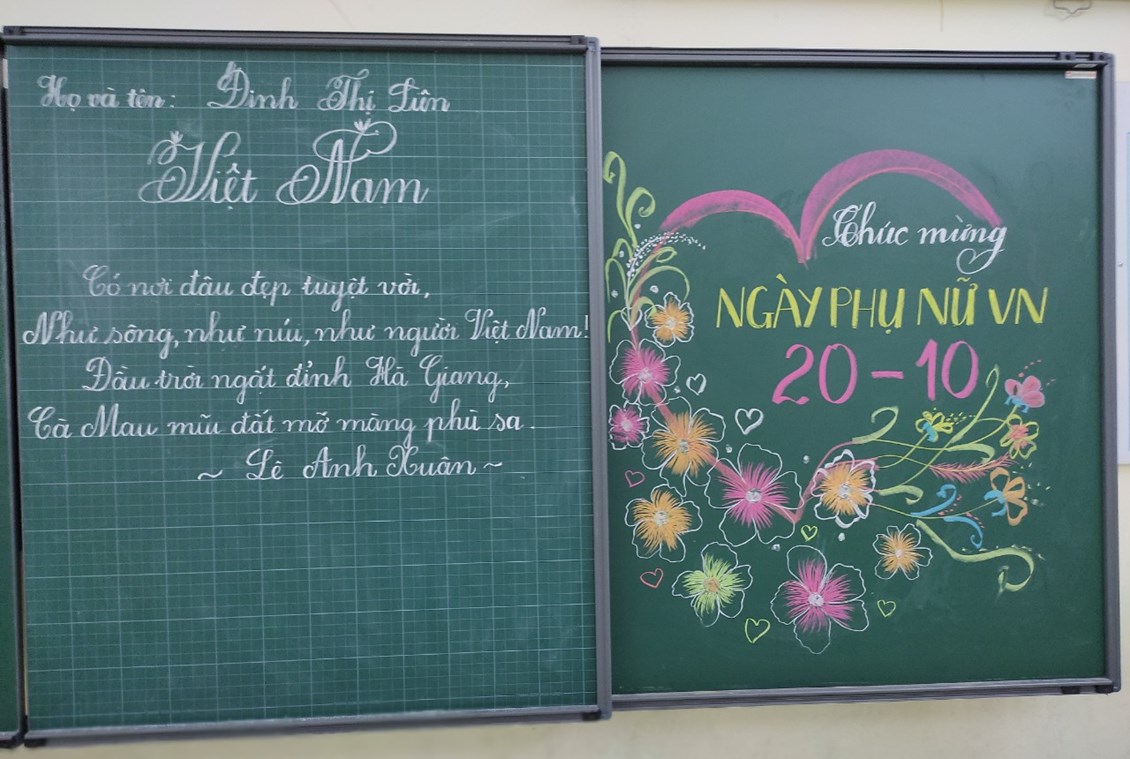 Họ và tên: Đinh Thị Liên
Việt Nam
Có nơi đâu đẹp tuyệt vời,
Như sông, như núi, như người Việt Nam!
Đầu trời ngất đỉnh Hà Giang,
Cà Mau mũi đất mỡ màng phù sa.
~ Lê Anh Xuân ~
Chúc mừng
NGÀY PHỤ NỮ VN
20-10